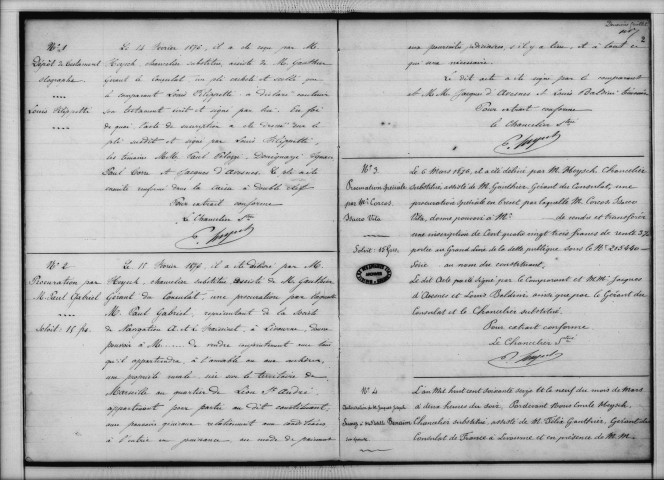 N° 1
Dépôt de testament
olographe
Louis Filippetti
Le 14 Février 1876, il a été reçu par M.
Heysch, chancelier substitué, assisté de M. Gauthier
Gérant le Consulat, un pli cacheté et scellé que
le comparant Louis Filippetti a déclaré contenir
son testament écrit et signé par lui. En foi
de quoi l'acte de suscription a été dressé sur le
pli susdit et signé par Louis Filippetti,
les témoins M.M. Paul
Paul et Jacques d'Avesnes. Le pli a été
ensuite renfermé dans la caisse à double clef
Pour extrait conforme
Le Chancelier Sté
N° 2
Procuration par
M. Paul Gabriel
Soldé: 15 fcs.
Le 15 Février 1876, il a été délivré par M.
Heysch, chancelier substitué assisté de M. Gauthier
Gérant du Consulat, une procuration par laquelle
M. Paul Gabriel, représentant de la Société
de Navigation A. et L. Fraissinet, à Livourne, donne
pouvoir à M. de vendre
qu'il appartiendra, à l'amiable ou aux enchères,
une propriété rurale sise sur le territoire de
Marseille au quartier de St André,
appartenant pour partie au dit constituant,
aux pouvoirs généraux relativement aux conditions
à l'entrée en jouissance, au mode de paiement
2
aux poursuites judiciaires, s'il y a lieu, et à tout ce
qui sera nécessaire.
Le dit acte a été signé par le comparant
et M.M. Jacques d'Avesnes et Louis Baldini témoins
Pour extrait conforme
le Chancelier Sté
N° 3.
Procuration spéciale
par Mr Corcos
Soldé: 15 fcs.
Le 6 Mars 1876, il a été délivré par M. Heysch, Chancelier
substitué, assisté de M. Gauthier, Gérant du Consulat, une
procuration spéciale en brevet par laquelle M. Corcos
Vita, donne pouvoir à Mr de vendre et transférer
une inscription de Cent quatre vingt trois francs de rente 3%
portée au Grand Livre de la dette publique sous le N° 215440
Série au nom du constituant.
Le dit Acte porté signé par le Comparant et M.M. Jacques
d'Avesnes et Louis Baldini ainsi que par le Gérant du
Consulat et le Chancelier substitué.
Pour extrait conforme
Le Chancelier Sté
N° 4.
L'an Mil huit cent soixante seize et le neuf du mois de Mars
à deux heures du soir, Pardevant Nous Emile Heysch,
Chancelier substitué, assisté de M. Félix Gauthier, Gérant du
Consulat de France à Livourne et en présence de M.M.